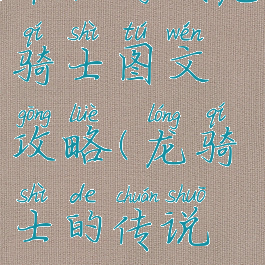 qí shì tú wén
骑士图文
gōng lüè lóng qí
攻略(龙骑
shì de chuán shuō
士的传说